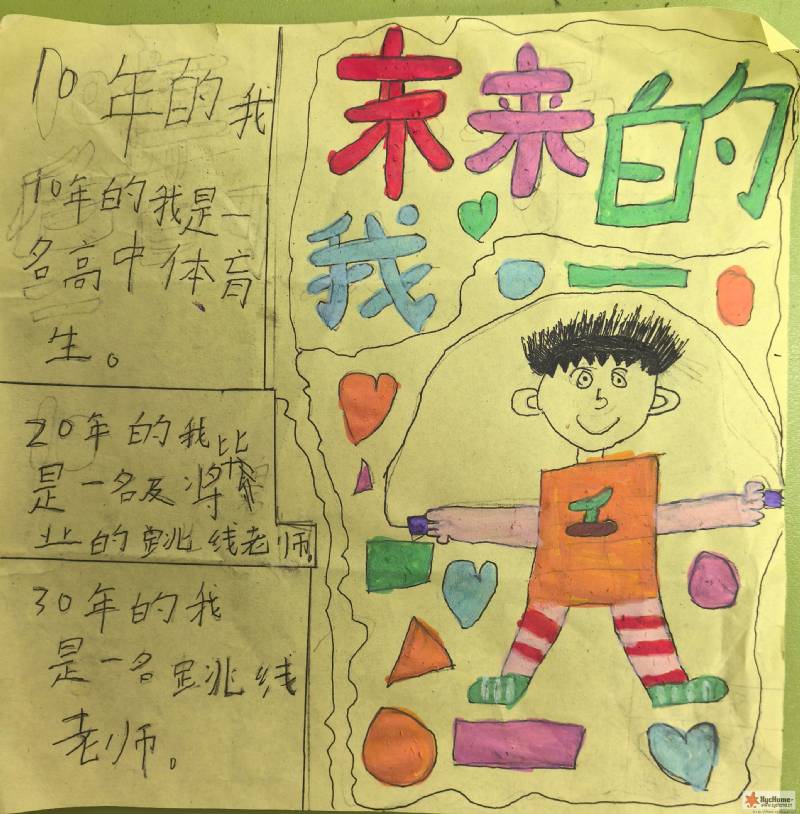 末来的
我
10年的我
10年的我是一
名高中体育
生。
20年的我
是一名及将毕
业的跳线老师。
30年的我
是一名跳线
老师。
HycHome